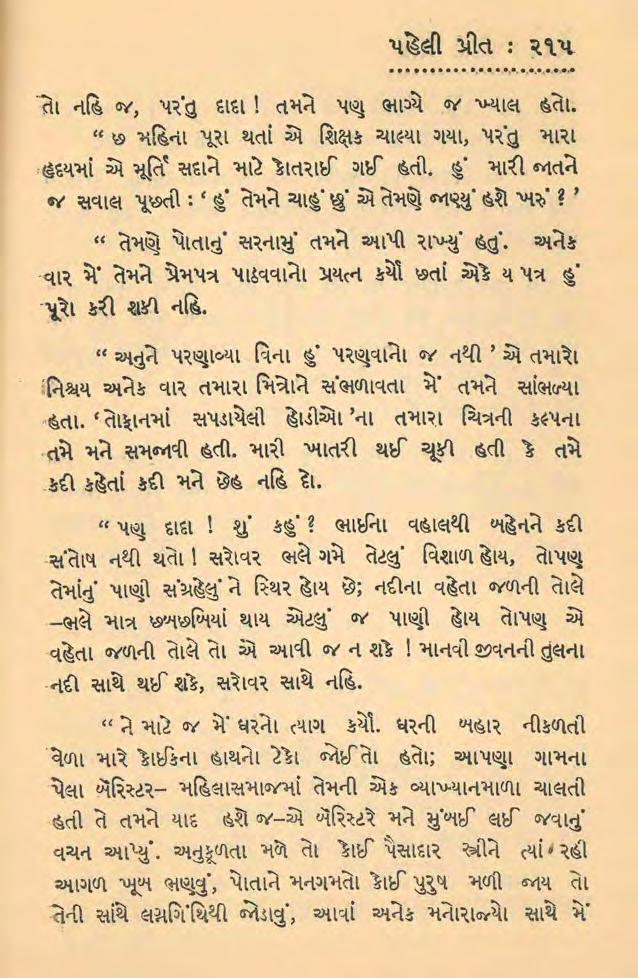 પહેલી પ્રીત : ૨૧૫
તો નહિ જ, પરંતુ દાદા ! તમને પણ ભાગ્યે જ ખ્યાલ હતો.
“ છ મહિના પૂરા થતાં એ શિક્ષક ચાલ્યા ગયા, પરંતુ મારા
હૃદયમાં એ મૂર્તિ સદાને માટે કોતરાઈ ગઈ હતી. હું મારી જાતને
જ સવાલ પૂછતી : ‘ હું તેમને ચાહું છું એ તેમણે જાણ્યું હશે ખરું ? ’
“ તેમણે પોતાનું સરનામું તમને આપી રાખ્યું હતું. અનેક
વાર મેં તેમને પ્રેમપત્ર પાઠવવાનો પ્રયત્ન કર્યો છતાં એકે ય પત્ર હું
પૂરો કરી શકી નહિ.
“ અનુને પરણાવ્યા વિના હું પરણવાનો જ નથી ’ એ તમારો
નિશ્ચય અનેક વાર તમારા મિત્રોને સંભળાવતા મેં તમને સાંભળ્યા
હતા. ‘તોફાનમાં સપડાયેલી હોડીઓ ’ના તમારા ચિત્રની કલ્પના
તમે મને સમજાવી હતી. મારી ખાતરી થઈ ચૂકી હતી કે તમે
કદી કહેતાં કદી મને છેહ નહિ દો.
“ પણ દાદા ! શું કહું ? ભાઈના વહાલથી બહેનને કદી
સંતોષ નથી થતો ! સરોવર ભલે ગમે તેટલું વિશાળ હોય, તોપણ
તેમાંનું પાણી સંગ્રહેલું ને સ્થિર હોય છે; નદીના વહેતા જળની તોલે
–ભલે માત્ર છબછબિયાં થાય એટલું જ પાણી હોય તોપણ એ
વહેતા જળની તોલે તો એ આવી જ ન શકે ! માનવી જીવનની તુલના
નદી સાથે થઈ શકે, સરોવર સાથે નહિ.
“ ને માટે જ મેં ઘરનો ત્યાગ કર્યો. ઘરની બહાર નીકળતી
વેળા મારે કોઈકના હાથનો ટેકો જોઈતો હતો; આપણા ગામના
પેલા બૅરિસ્ટર– મહિલાસમાજમાં તેમની એક વ્યાખ્યાનમાળા ચાલતી
હતી તે તમને યાદ હશે જ–એ બૅરિસ્ટરે મને મુંબઈ લઈ જવાનું
વચન આપ્યું. અનુકૂળતા મળે તો કોઈ પૈસાદાર સ્ત્રીને ત્યાં રહી
આગળ ખૂબ ભણવું, પોતાને મનગમતો કોઈ પુરુષ મળી જાય તો
તેની સાંથે લગ્નગ્રિંથિથી જોડાવું, આવાં અનેક મનોરાજ્યો સાથે મેં